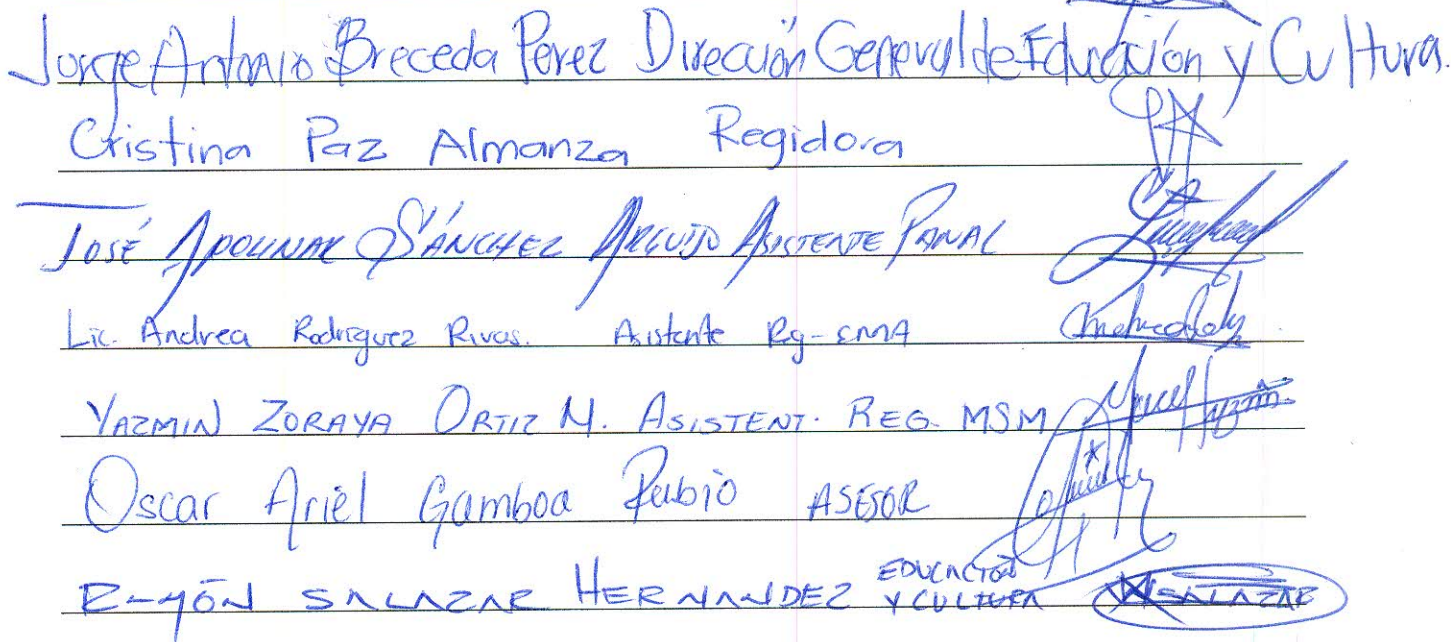 Jorge Antonio Breceda Perez Dirección General de Educación y Cultura.
Cristina Paz Almanza Regidora
José Apolinar Sánchez Arguijo Asistente Panal
Lic. Andrea Rodriguez Rivas. Asistente Rg-EMA
YAZMIN ZORAYA ORTIZ M. ASISTENT. REG. MSM
Oscar Ariel Gamboa Rubio ASESOR
RAMÓN SALAZAR HERNANDEZ EDUCACIÓN Y CULTURA SALAZAR